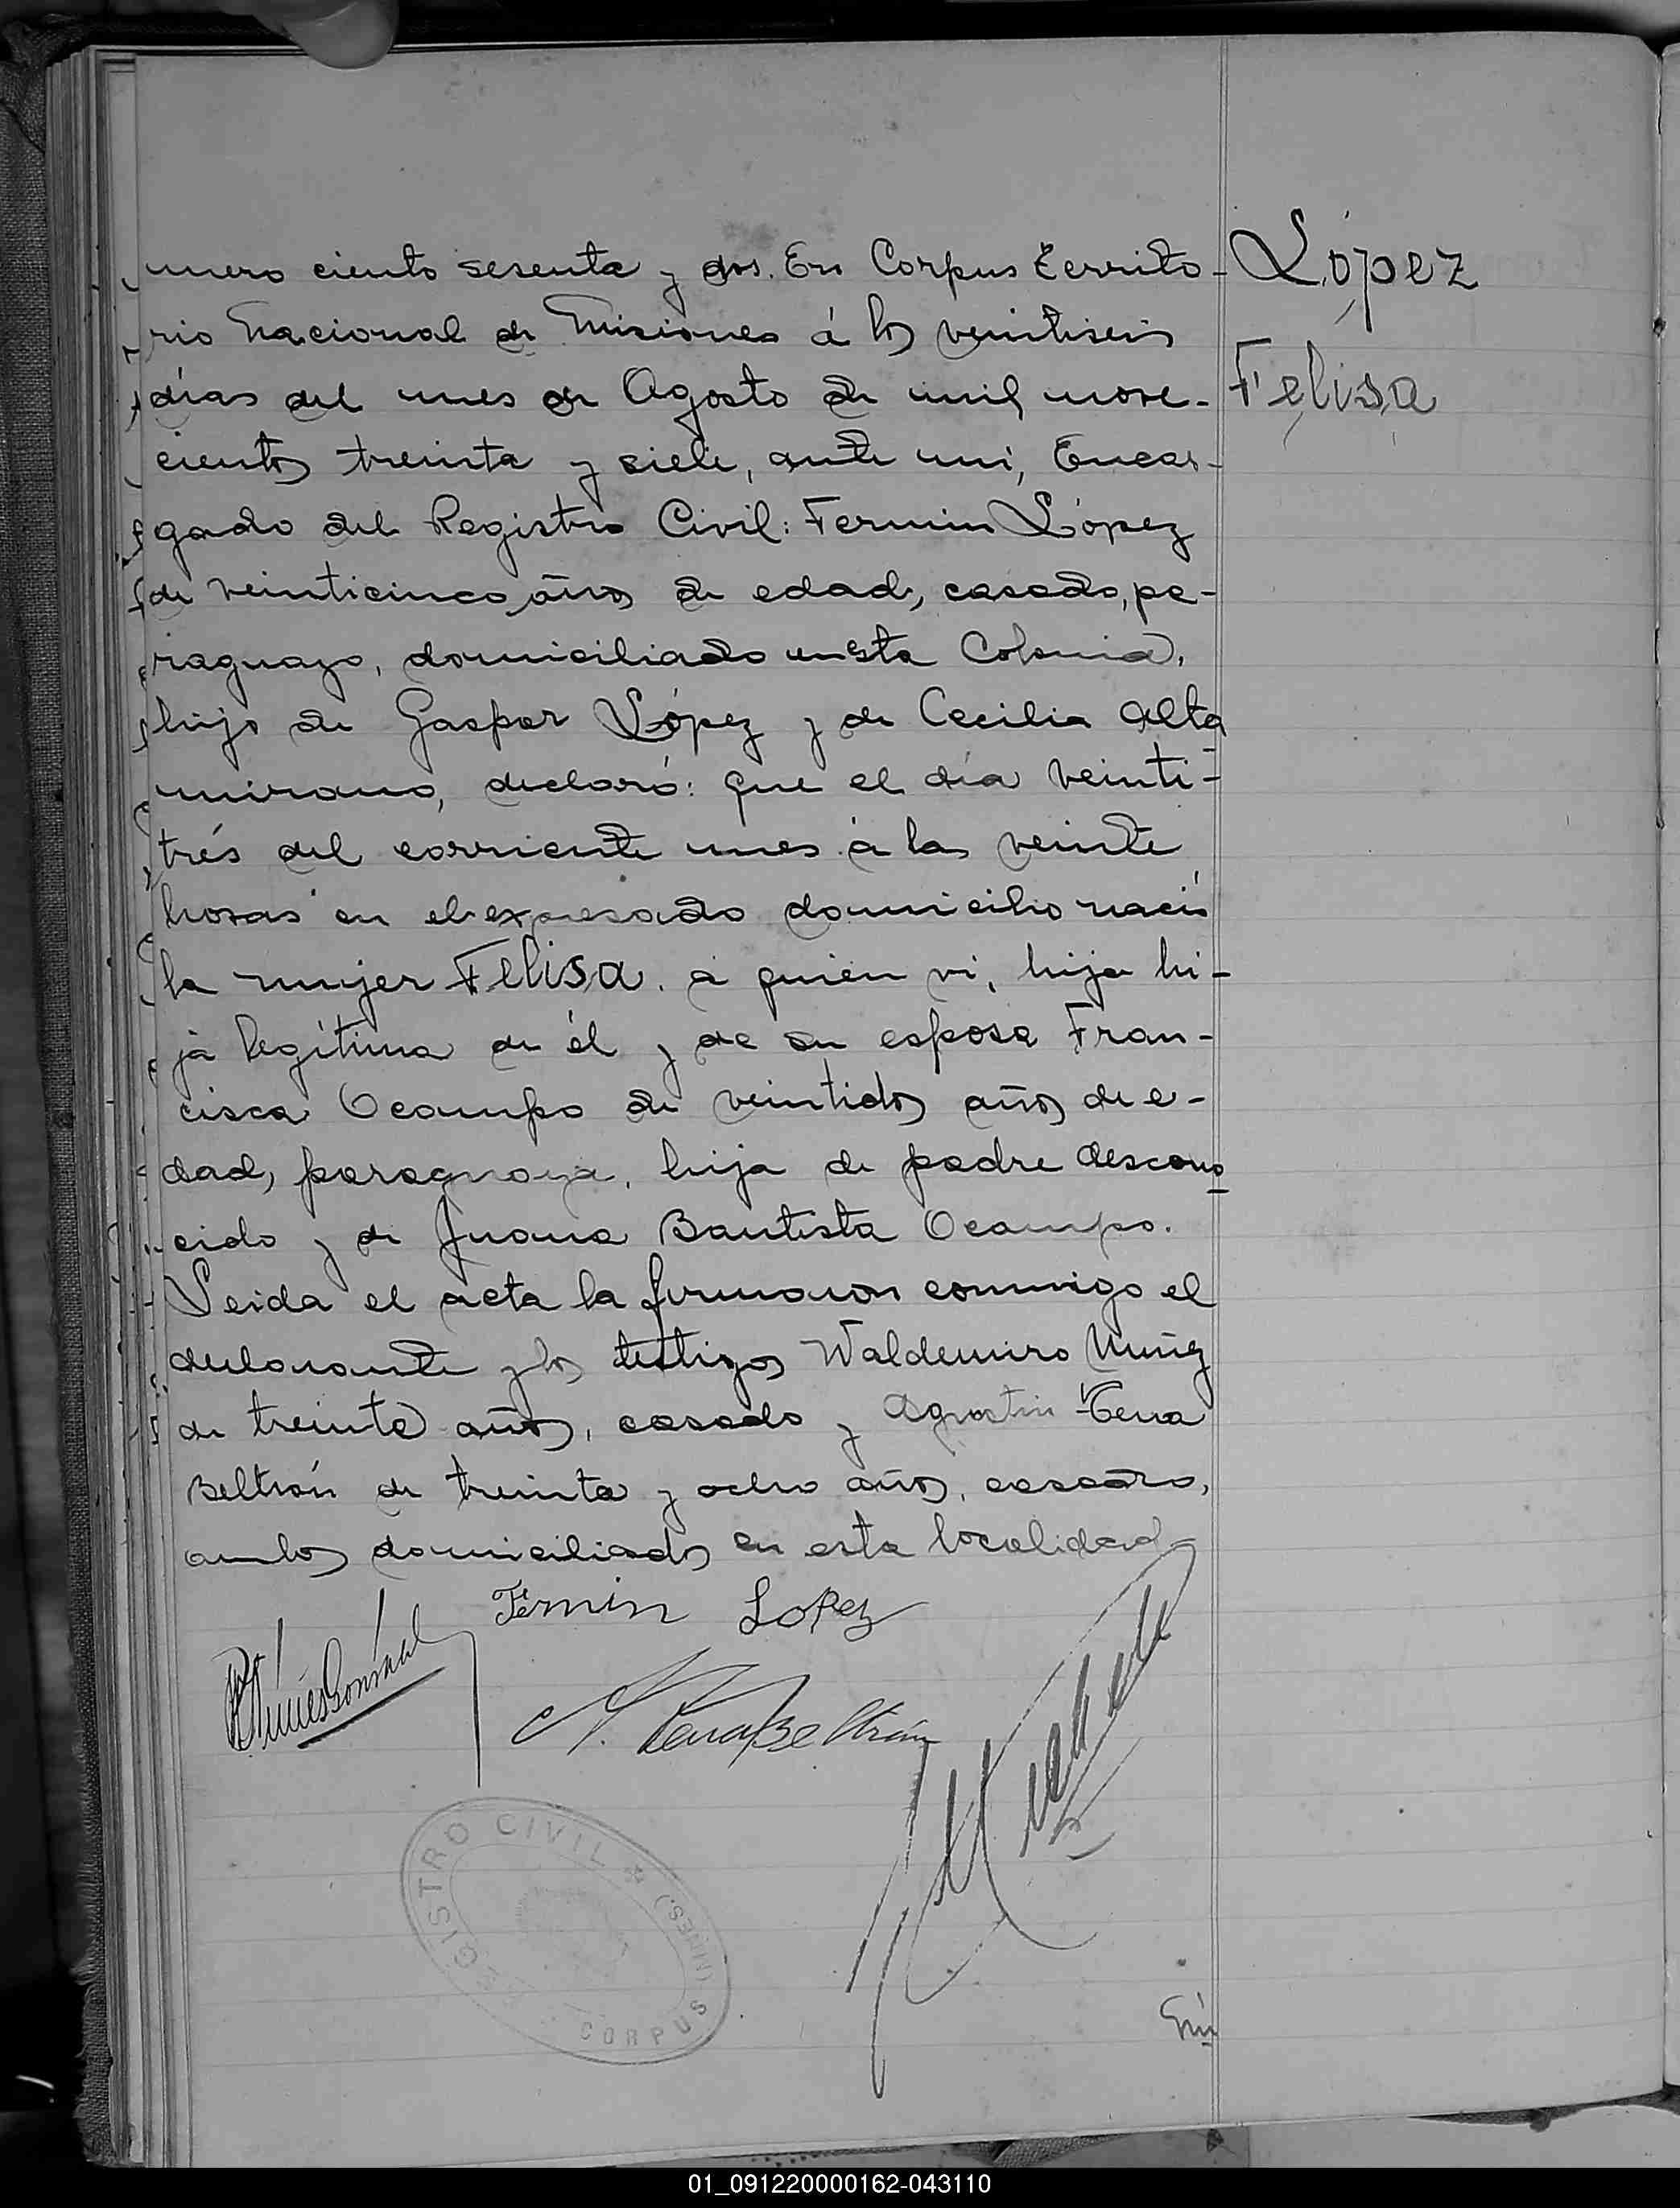 mero ciento sesenta y dos. En Corpus Territo-
rio Nacional de Misiones á los veintiseis
días del mes de Agosto de mil nove-
cientos treinta y siete, ante mi, Encar-
gado del Registro Civil: Fermin López
de veinticinco años de edad, casado, pa-
raguayo, domiciliado en esta Colonia,
hijo de Gaspar López y de Cecilia Alta
mirano, declaró: que el día veinti-
trés del corriente mes á las veinte
horas en el expresado domicilio nació
la mujer Felisa. á quién vi, hija hi-
ja legítima de él y de su esposa Fran-
cisca Ocampo de veintidos años de e-
dad, paraguaya, hija de padre descono
cido y de Juana Bautista Ocampo.
Leida el acta la firmaron conmigo el
declarante y los testigos Waldemiro Nuñez
de treinta años, casado y Agustin Tena
Beltrán de treinta y ocho años, casado,
ambos domiciliados en esta localidad
López
Felisa
Fermin Lopez
A. Tena Beltrán
REGISTRO CIVIL * (MNES.)
CORPUS
01_091220000162-043110